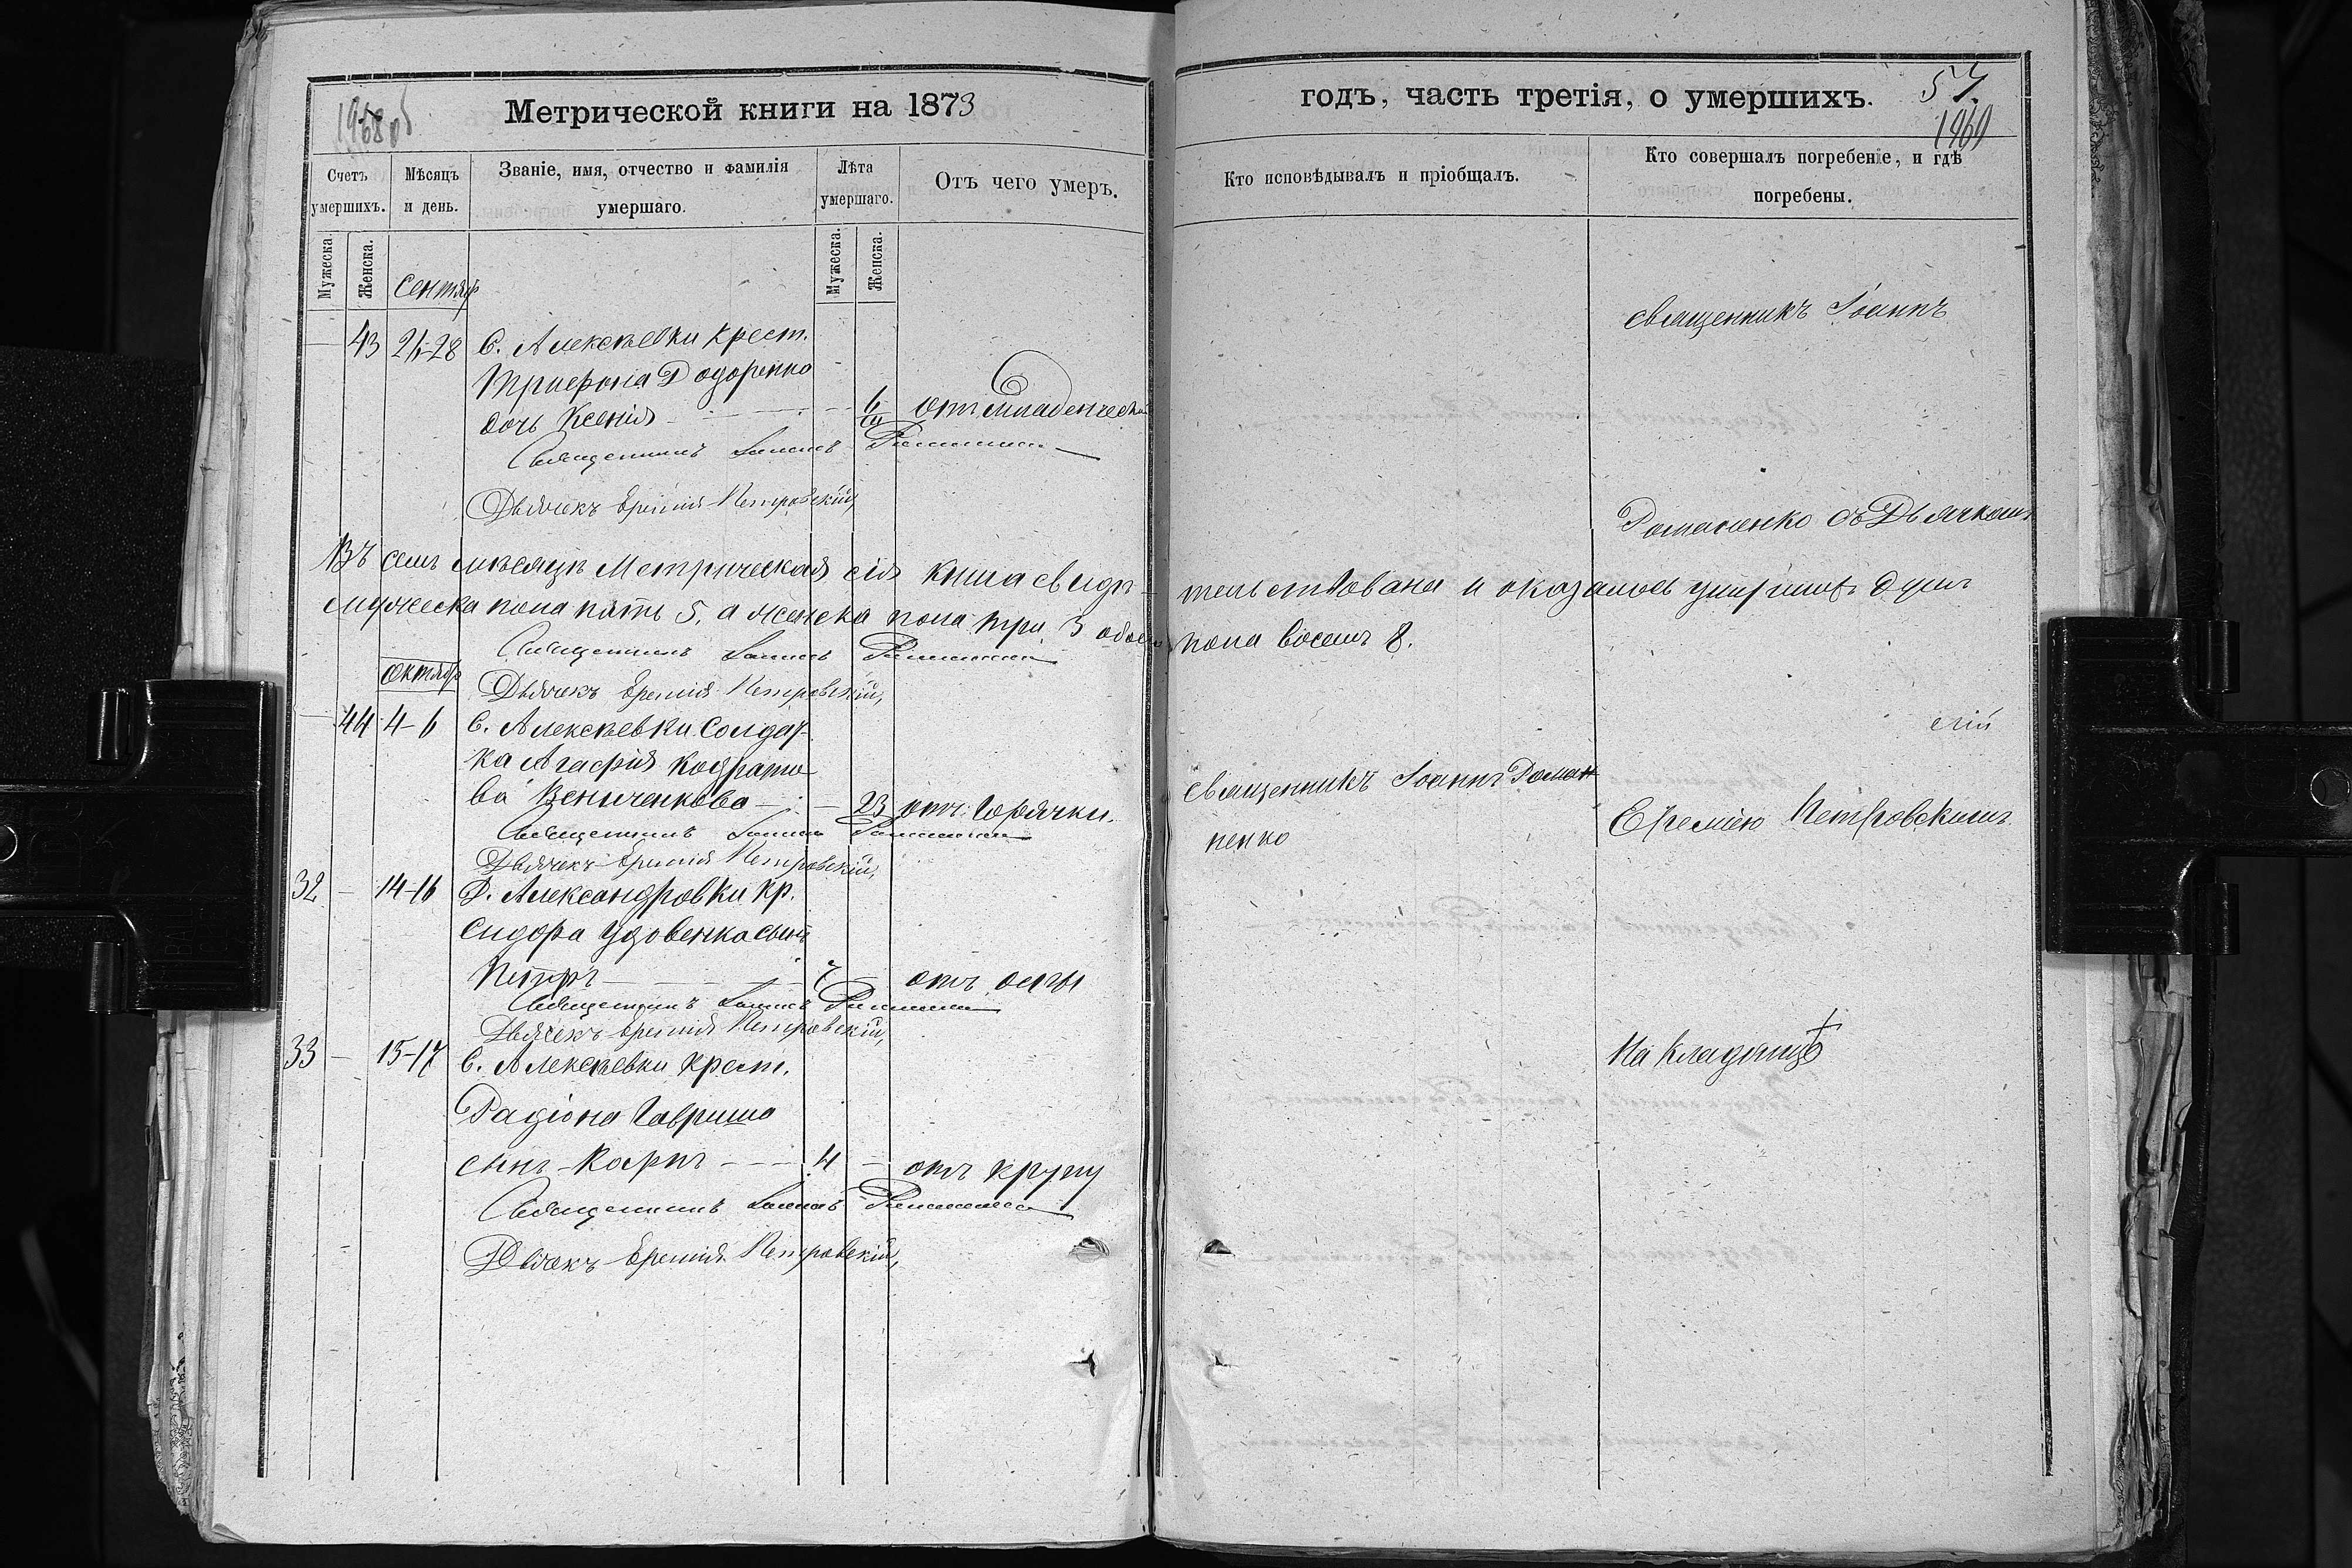 1968 об
Метрической книги на 1873
Счетъ умершихъ.
Мѣсяцъ и день.
Званіе, имя, отчество и фамилія умершаго.
Лѣта умершаго.
Отъ чего умеръ.
Мужеска
Женска.
Мужеска.
Женска.
Сентяб
43 26-28 С. Алексѣевки крест.
Трифона Додоренко
дочь Ксенія 6/м отъ младенческой
Священникъ Іоаннъ Романенко
Дьячекъ Еремія Петровскій,
Въ семъ мѣсяцѣ Метрическая сія книга свидѣ-
мужеска пола пять 5, а женска пола три 3 обоего
Священникъ Іоаннъ Романенко
Октябр
Дьячекъ Еремія Петровскій,
44 4-6 С. Алексѣевки Солдат
ка Агафія Кодрато
ва 23 отъ горячки.
Священникъ Іоаннъ Романенко
Дьячекъ Еремія Петровскій,
32 14-16 Д. Александровки кр.
Сидора Удовенка сынъ
Петръ 7 отъ оспы
Священникъ Іоаннъ Романенко
Дьячекъ Еремія Петровскій,
33 15-17 С. Алексѣевки крест.
Радіона Гавриша
сынъ Карпъ 4 отъ крупу
Священникъ Іоаннъ Романенко
Дьячекъ Еремія Петровскій,
годъ, часть третія, о умершихъ.
57.
1969
Кто исповѣдывалъ и пріобщалъ.
Кто совершалъ погребеніе, и гдѣ
погребены.
священникъ Іоаннъ
Романенко съ Дьячкомъ
тельствована и оказалось умершихъ душъ
пола восемь 8.
священникъ Іоаннъ Роман
ненко
Еремією Петровскимъ
На кладбищѣ